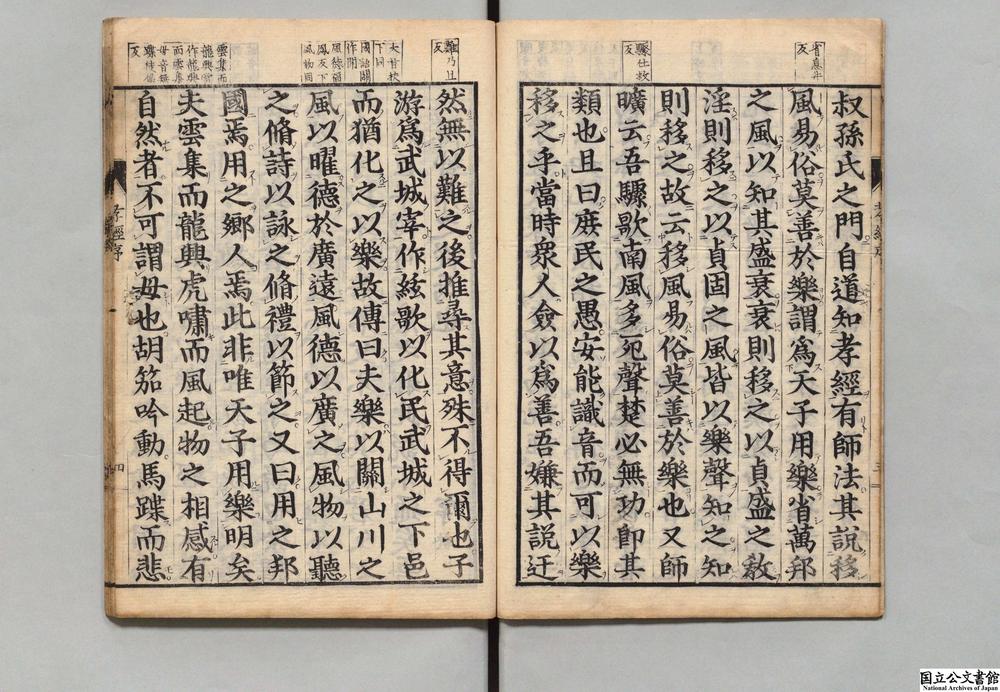 叔孫氏之門自道知孝經有師法其說移
風易俗莫善於樂謂爲天子用樂省萬邦
之風以知其盛衰衰則移之以貞盛之敎
淫則移之以貞固之風皆以樂聲知之知
則移之故云移風易俗莫善於樂也又師
曠云吾驟歌南風多死聲楚必無功卽其
類也且曰庶民之愚安能識音而可以樂
移之乎當時衆人僉以爲善吾嫌其說迂
然無以難之後推尋其意殊不得爾也子
游爲武城宰作絃歌以化民武城之下邑
而猶化之以樂故傳曰夫樂以關山川之
風以曜德於廣遠風德以廣之風物以聽
之脩詩以詠之脩禮以節之又曰用之邦
國焉用之鄕人焉此非唯天子用樂明矣
夫雲集而龍興虎嘯而風起物之相感有
自然者不可謂毋也胡笳吟動馬蹀而悲
孝經序
三
孝經序
四
国立公文書館
National Archives of Japan